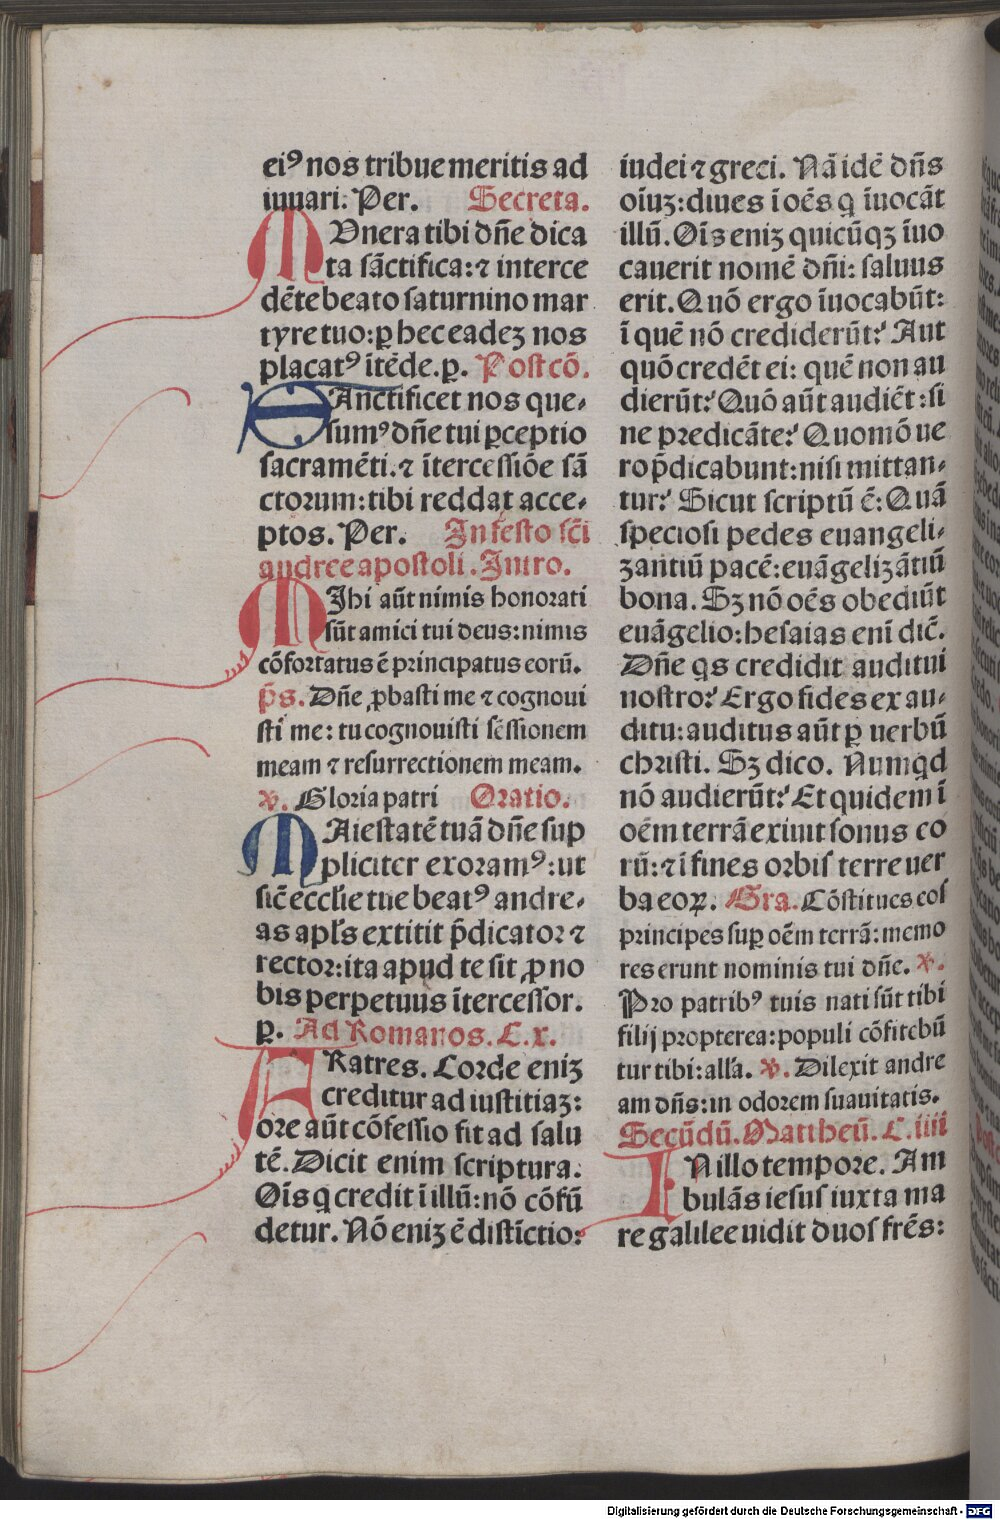 eiꝰ nos tribue meritis ad
iuuari. Per. Secreta.
MUnera tibi dñe dica
ta sãctifica: ⁊ interce
dẽte beato saturnino mar
tyre tuo: ꝑ hec eadeʒ nos
placatꝰ ĩtẽde. ꝑ. Postcõ.
SAnctificet nos que⸗
sumꝰ dñe tui ꝑceptio
sacramẽti. ⁊ ĩtercessiõe sã
ctorum: tibi reddat acce⸗
ptos. Per. In festo sc̃i
andree apostoli. Intro.
MIhi aũt nimis honorati
sũt amici tui deus: nimis
cõfortatus ẽ principatus eorũ.
p̃s. Dñe ꝓbasti me ⁊ cognoui
sti me: tu cognouisti sẽssionem
meam ⁊ resurrectionem meam.
℣. Gloria patri Oratio.
MAiestatẽ tuã dñe sup
pliciter exoramꝰ: ut
sic̃ eccl̃ie tue beatꝰ andre⸗
as apl̃s extitit p̃dicator ⁊
rector: ita apud te sit ꝓ no
bis perpetuus ĩtercessor.
ꝑ. Ad Romanos. C. x.
FRatres. Corde eniʒ
creditur ad iustitiaʒ:
ore aũt cõfessio fit ad salu
tẽ. Dicit enim scriptura.
Oĩs q credit ĩ illũ: nõ cõfũ
detur. Nõ eniʒ ẽ distĩctio:
iudei ⁊ greci. Nã idẽ dñs
oĩuʒ: diues ĩ oẽs q ĩuocãt
illũ. Oĩs eniʒ quicũqʒ ĩuo
cauerit nomẽ dñi: saluus
erit. Quõ ergo ĩuocabũt:
ĩ quẽ nõ crediderũt? Aut
quõ credẽt ei: quẽ non au
dierũt? Quõ aũt audiẽt: si
ne predicãte? Quomõ ue
ro p̃dicabunt: nisi mittan⸗
tur? Sicut scriptũ ẽ: Quã
speciosi pedes euangeli⸗
zantiũ pacẽ: euãgelizãtiũ
bona. Sʒ nõ oẽs obediũt
euãgelio: hesaias enĩ dic̃.
Dñe qs credidit auditui
nostro? Ergo fides ex au⸗
ditu: auditus aũt ꝑ uerbũ
christi. Sʒ dico. Numqd
nõ audierũt? Et quidem ĩ
oẽm terrã exiuit sonus eo
rũ: ⁊ ĩ fines orbis terre uer
ba eoꝝ. Gra. Cõstitues eos
principes suꝑ oẽm terrã: memo
res erunt nominis tui dñe. ℣.
Pro patribꝰ tuis nati sũt tibi
filij propterea: populi cõfitebũ
tur tibi: all'a. ℣. Dilexit andre
am dñs: in odorem suauitatis.
Secũdũ. Mattheũ. C. iiii
IN illo tempore. Am
bulãs iesus iuxta ma
re galilee uidit duos frẽs:
Digitalisierung gefördert durch die Deutsche Forschungsgemeinschaft - DFG